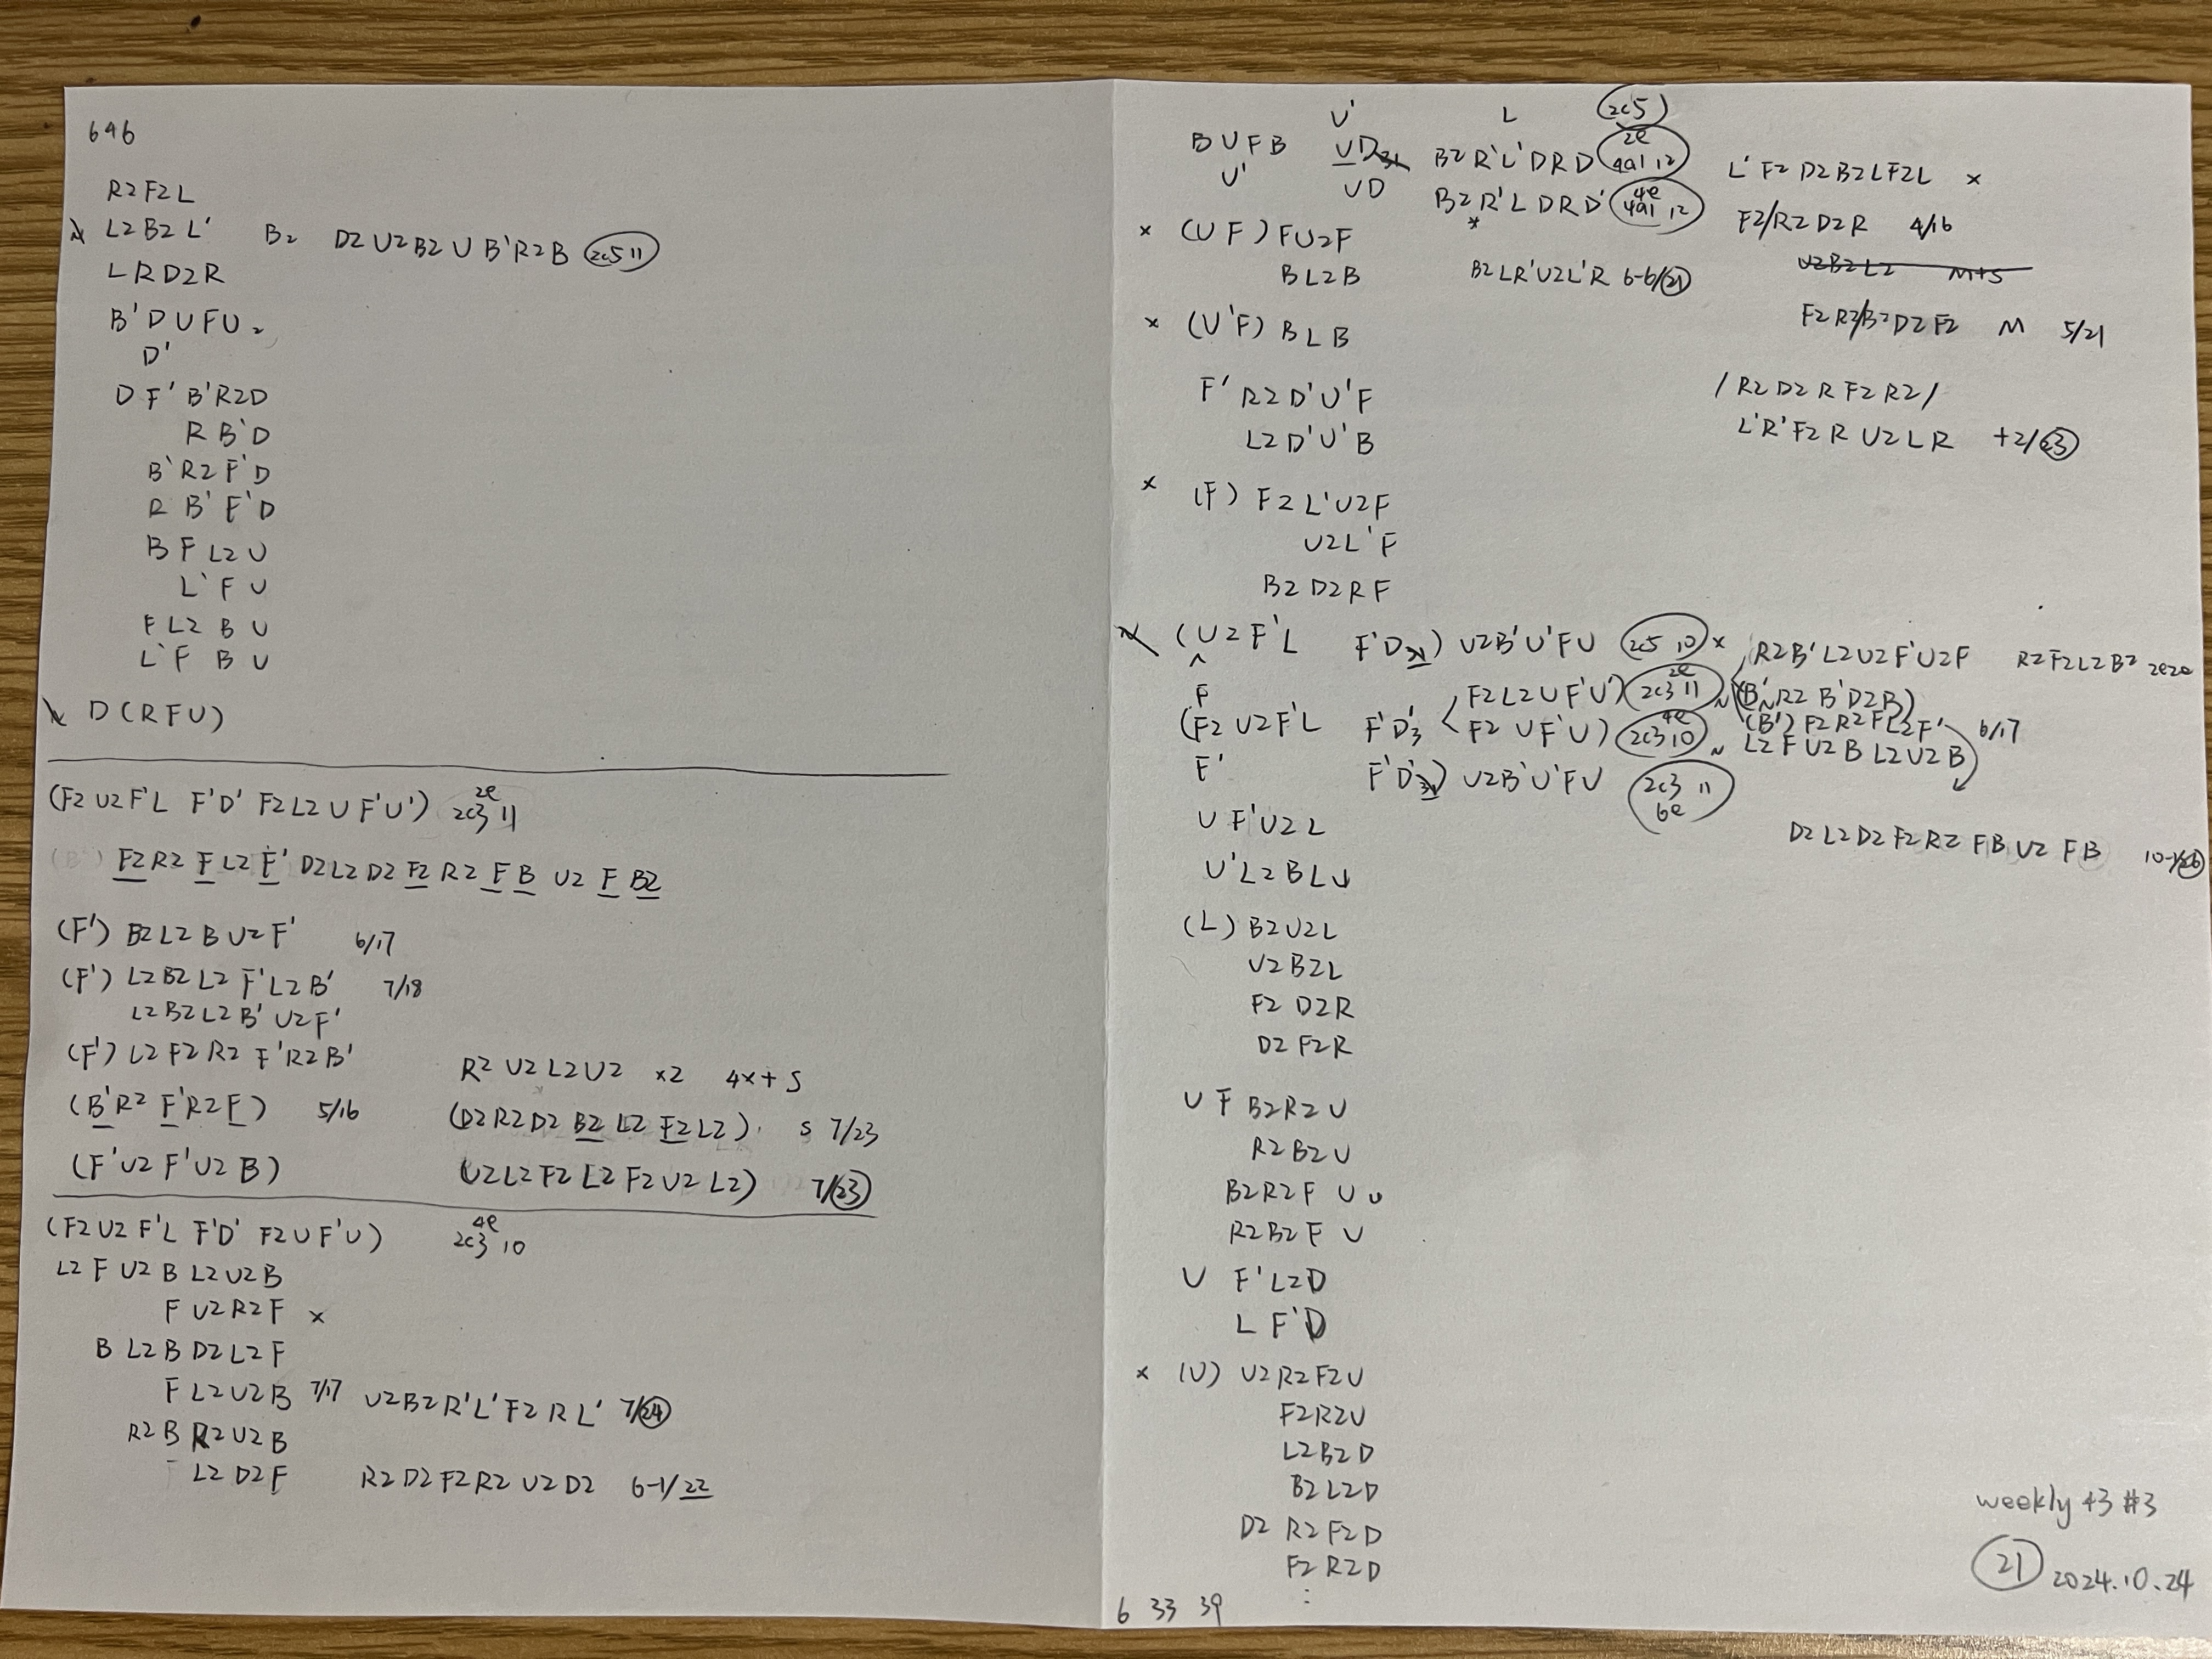 646
R2F2L
L2B2L' B2 D2U2B2UB'R2B 2c5 11
LRD2R
B'DUFU2
D'
DF'B'R2D
RB'D
B'R2F'D
RB'F'D
BFL2U
L'FU
FL2BU
L'FBU
D(RFU)
(F2U2F'L F'D' F2L2UF'U') 2e 2c3 11
F2R2FL2F'D2L2D2F2R2FBU2FB2
(F') B2L2BU2F' 6/17
(F') L2B2L2F'L2B' 7/18
L2B2L2B'U2F'
(F') L2F2R2F'R2B' R2U2L2U2 x2 4x+S
(B'R2F'R2F) 5/16 (D2R2D2B2L2F2L2) S 7/23
(F'U2F'U2B) (U2L2F2L2F2U2L2) 7/23
(F2U2F'L F'D' F2UF'U) 4e 2c3 10
L2FU2BL2U2B
FU2R2F x
BL2BD2L2F
FL2U2B 7/17 U2B2R'L'F2RL' 7/24
R2BR2U2B
L2D2F R2D2F2R2U2D2 6-1/22
U' L 2c5
BUFB UD B2R'L'DRD 2e 4a1 12 L'F2D2B2LF2L x
U' UD B2R'LDRD' 4e 4a1 12 F2/R2D2R 4/16
*
x (UF)FU2F U2B2L2 M+S
BL2B B2LR'U2L'R 6-6/21
x (U'F)BLB F2R2/B2D2F2 M 5/21
F'R2D'U'F /R2D2RF2R2/
L2D'U'B L'R'F2RU2LR +2/23
x (F)F2L'U2F
U2L'F
B2D2RF
(U2F'L F'D) U2B'U'FU 2c5 10 x R2B'L2U2F'U2F R2F2L2B2 2e2e
F F2L2UF'U') 2e 2c3 11 ~ (B'R2B'D2B)
(F2U2F'L F'D'3 F2UF'U) 4e 2c3 10 (B')F2R2FL2F' 6/17
~ L2FU2BL2U2B
F' F'D') U2B'U'FU 2c3 11 6e
UF'U2L D2L2D2F2R2FBU2FB 10-1/26
U'L2BLU
(L)B2U2L
U2B2L
F2D2R
D2F2R
UFB2R2U
R2B2U
B2R2FUU
R2B2FU
UF'L2D
LF'D
x (U)U2R2F2U
F2R2U
L2B2D
B2L2D
D2R2F2D
F2R2D
⋮
6 33 39
weekly 43 #3
21 2024.10.24